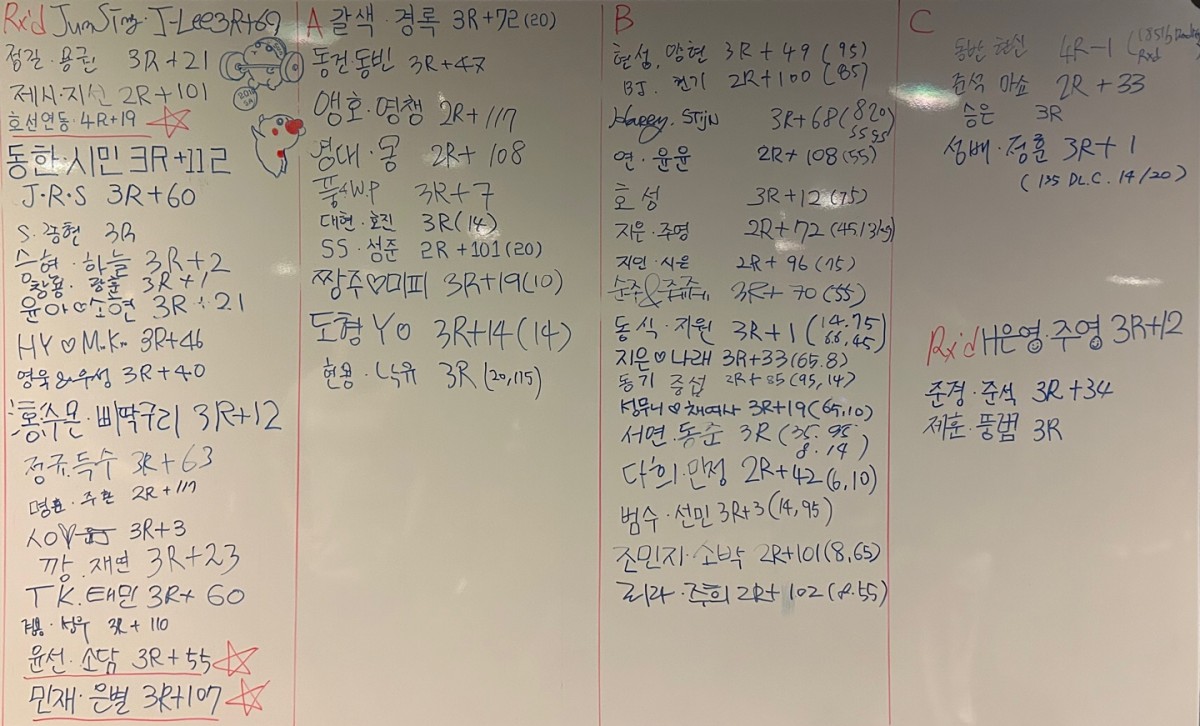 Rx'd JunSing · J-Lee 3R+69
정길·용권 3R+21
제시·지선 2R+101
호선연동·4R+19
동한·시민 3R+112
J·R·S 3R+60
S. 중현 3R
승현·하늘 3R+2
창용·광훈 3R+1
윤아♡소현 3R+21
HY♡M.K. 3R+46
영욱&우성 3R+40
홍수몬·삐딱구리 3R+12
정규·득수 3R+63
명환·주환 2R+117
3R+3
깡·재연 3R+23
TK.태민 3R+60
3R+110
윤선·소담 3R+55
민재·은별 3R+107
A 갈색·경록 3R+72(20)
동건·동빈 3R+47
앵호·영챙 2R+117
영대·몽 2R+108
풍&W.P 3R+7
대현·호진 3R(14)
SS·성준 2R+101(20)
짱주♡미피 3R+19(10)
도형 YO 3R+14(14)
현용·낙유 3R(20,115)
B
현성, 망현 3R+49(95)
BJ. 현기 2R+100(85)
Happy. Stijn 3R+68(820 5595)
연·윤윤 2R+108(55)
호성 3R+12(75)
지은·주영 2R+72(45.13kg)
지인·시은 2R+96(75)
순주& 3R+70(55)
동식·지원 3R+1(14.75 66,45)
지은♡나래 3R+33(65.8)
동기 중섭 2R+85(95,14)
성무니♡채여사 3R+19(65,10)
서면·동준 3R(35.95 8.14)
다희·민정 2R+42(6,10)
범수·선민 3R+3(14,95)
조민지·소박 2R+101(8,65)
리라·주희 2R+102(8.55)
C
동반 현신 4R-1
준석 마쇼 2R+33
승은 3R
성배·정훈 3R+1
(135 DL.C. 14/20)
Rx'd 은영·주영 3R+12
준경·준석 3R+34
제훈·뚱범 3R